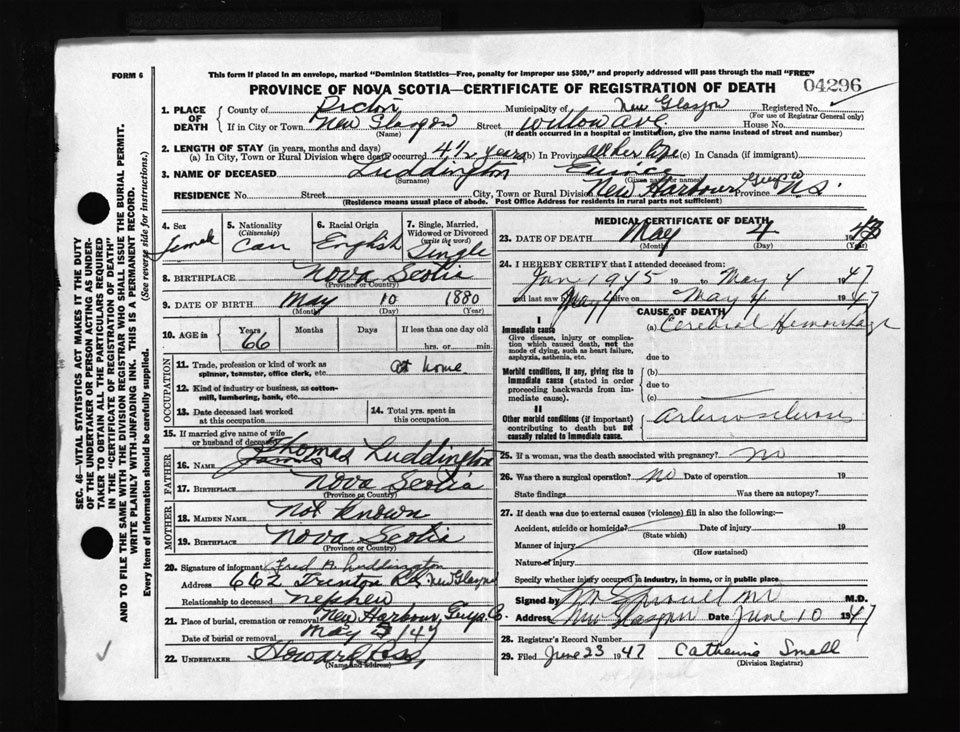 FORM 6
This form if placed in an envelope, marked "Dominion Statistics—Free, penalty for improper use $300," and properly addressed will pass through the mail "FREE"
PROVINCE OF NOVA SCOTIA—CERTIFICATE OF REGISTRATION OF DEATH
04296
1. PLACE OF DEATH
County of Pictou Municipality of New Glasgow Registered No.
(For use of Registrar General only)
If in City or Town New Glasgow Street Willow Ave House No.
(Name) (If death occurred in a hospital or institution, give the name instead of street and number)
2. LENGTH OF STAY (in years, months and days)
(a) In City, Town or Rural Division where death occurred 4½ years (b) In Province all her life (c) In Canada (if immigrant)
3. NAME OF DECEASED Luddington
(Surname) (Given name or names)
RESIDENCE No. Street City, Town or Rural Division New Harbour Guys Co Province N.S.
(Residence means usual place of abode. Post Office Address for residents in rural parts not sufficient)
SEC. 46—VITAL STATISTICS ACT MAKES IT THE DUTY
OF THE UNDERTAKER OR PERSON ACTING AS UNDER-
TAKER TO OBTAIN ALL THE PARTICULARS REQUIRED
IN THE "CERTIFICATE OF REGISTRATION OF DEATH"
AND TO FILE THE SAME WITH THE DIVISION REGISTRAR WHO SHALL ISSUE THE BURIAL PERMIT.
WRITE PLAINLY WITH UNFADING INK. THIS IS A PERMANENT RECORD.
Every item of information should be carefully supplied. (See reverse side for instructions.)
4. Sex
Female
5. Nationality
(Citizenship)
Can
6. Racial Origin
English
7. Single, Married,
Widowed or Divorced
(write the word)
Single
8. BIRTHPLACE Nova Scotia
(Province or Country)
9. DATE OF BIRTH May 10 1880
(Month) (Day) (Year)
10. AGE in
Years Months Days If less than one day old
66 hrs. or min.
OCCUPATION
11. Trade, profession or kind of work as
spinner, teamster, office clerk, etc. at home
12. Kind of industry or business, as cotton-
mill, lumbering, bank, etc.
13. Date deceased last worked
at this occupation
14. Total yrs. spent in
this occupation
15. If married give name of wife
or husband of deceased
FATHER
16. NAME James Thomas Luddington
17. BIRTHPLACE Nova Scotia
(Province or Country)
MOTHER
18. MAIDEN NAME Not Known
19. BIRTHPLACE Nova Scotia
(Province or Country)
20. Signature of informant Fred A Luddington
Address 662 Trenton Rd. New Glasgow
Relationship to deceased nephew
21. Place of burial, cremation or removal New Harbour, Guys. Co.
Date of burial or removal May /47
22. UNDERTAKER Howard
(Name and address)
MEDICAL CERTIFICATE OF DEATH
23. DATE OF DEATH May 4 19
(Month) (Day) (Year)
24. I HEREBY CERTIFY that I attended deceased from:
Jan 1945 19 to May 4 1947
and last saw alive on May 4 1947
CAUSE OF DEATH
I
Immediate cause
Give disease, injury or complica-
tion which caused death, not the
mode of dying, such as heart failure,
asphyxia, asthenia, etc.
(a) Cerebral Hemorrhage
due to
Morbid conditions, if any, giving rise to
immediate cause (stated in order
proceeding backwards from im-
mediate cause).
(b)
due to
(c)
II
Other morbid conditions (if important)
contributing to death but not
causally related to immediate cause.
Arteriosclerosis
25. If a woman, was the death associated with pregnancy? no
26. Was there a surgical operation? No Date of operation 19
State findings Was there an autopsy?
27. If death was due to external causes (violence) fill in also the following:
Accident, suicide or homicide? Date of injury 19
(State which)
Manner of injury
(How sustained)
Nature of injury
Specify whether injury occurred in industry, in home, or in public place
Signed by M.D.
Address New Glasgow Date June 10 1947
28. Registrar's Record Number
29. Filed June 23 1947 Catherine Small
(Division Registrar)